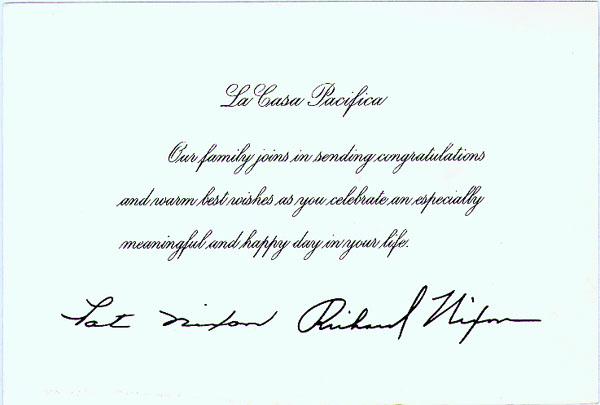 La Casa Pacifica
Our family joins in sending congratulations
and warm best wishes as you celebrate an especially
meaningful and happy day in your life.
Pat Nixon Richard Nixon